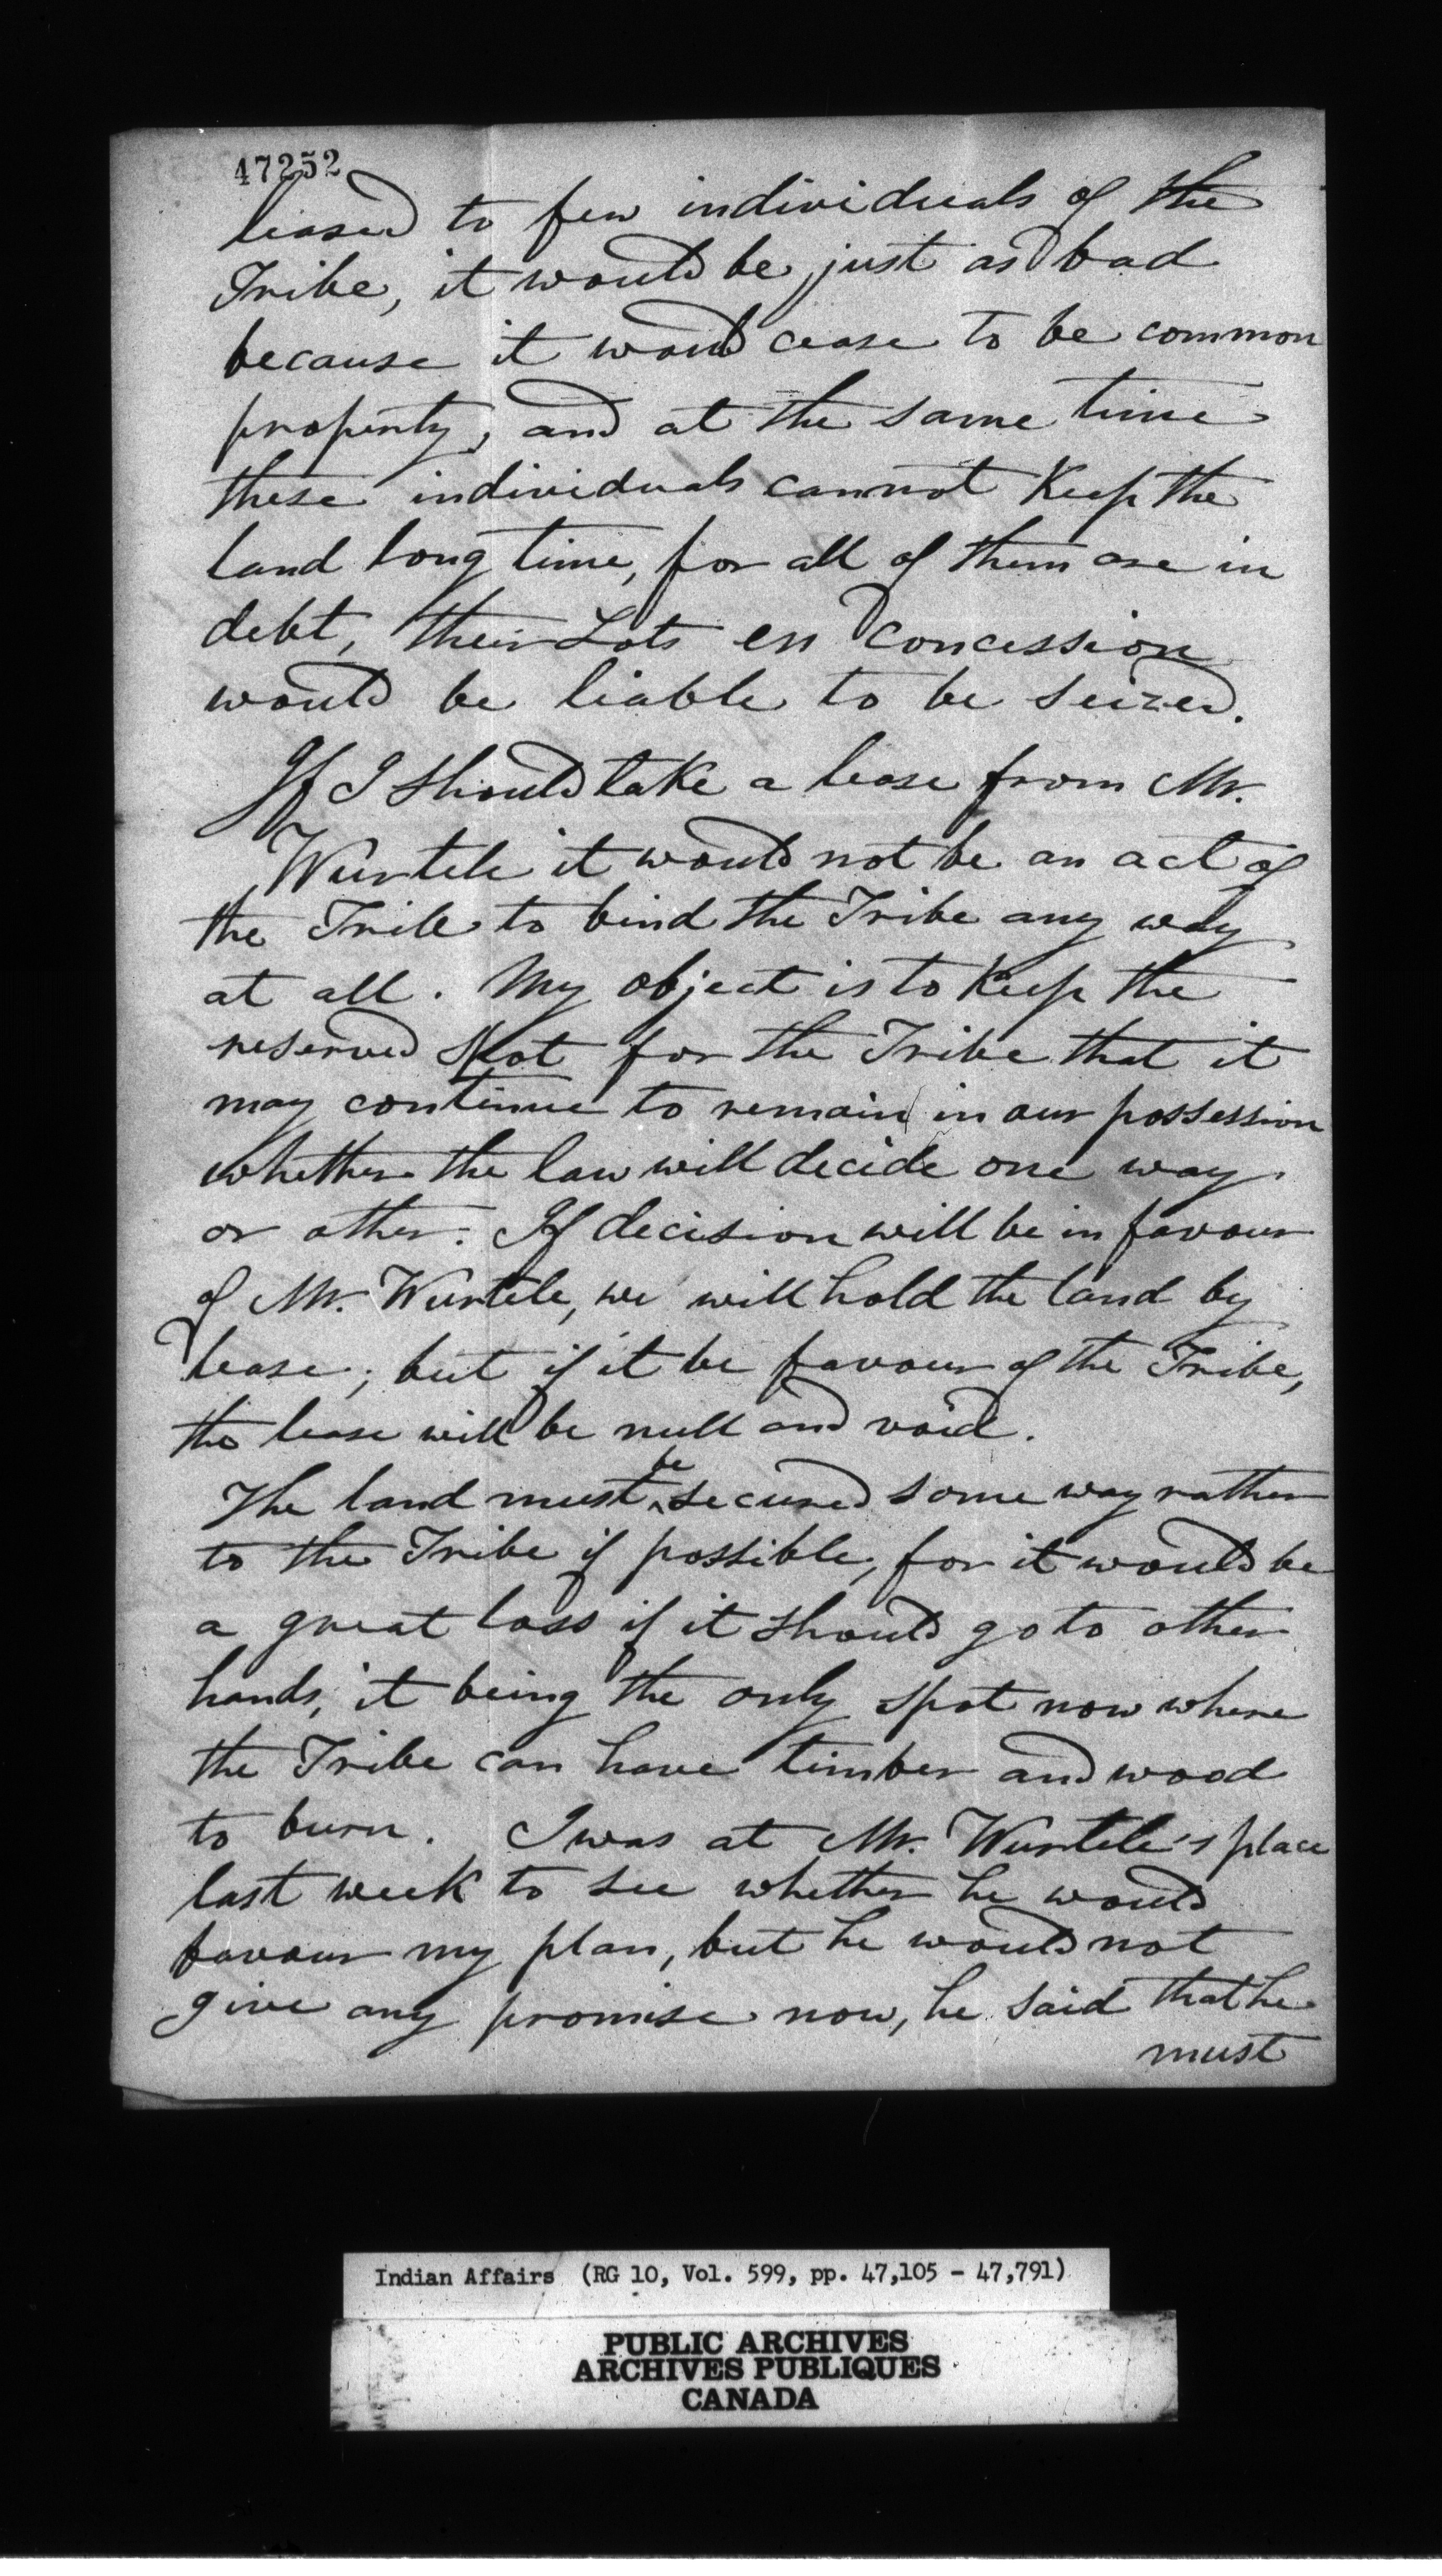 47252
leased to few individuals of the
Tribe, it would be just as bad
because it would cease to be common
property, and at the same time
these individuals cannot Keep the
land long time, for all of them are in
debt, their Lots en Concession
would be liable to be seized.
If I should take a lease from Mr.
Wurtele it would not be an act of
the Tribe to bind the Tribe any way
at all. My object is to Keep the
reserved Spot for the Tribe that it
may continue to remain in our possession
whether the law will decide one way
or other. If decision will be in favour
of Mr. Wurtele, we will hold the land by
lease; but if it be favour of the Tribe,
the lease will be null and void.
The land must be secured some way rather
to the Tribe if possible, for it would be
a great loss if it should go to other
hands, it being the only spot now where
the Tribe can have timber and wood
to burn. I was at Mr. Wurtele's place
last week to see whether he would
favour my plan, but he would not
give any promise now, he said that he
must
Indian Affairs (RG 10, Vol. 599, pp. 47,105 - 47,791)
PUBLIC ARCHIVES
ARCHIVES PUBLIQUES
CANADA